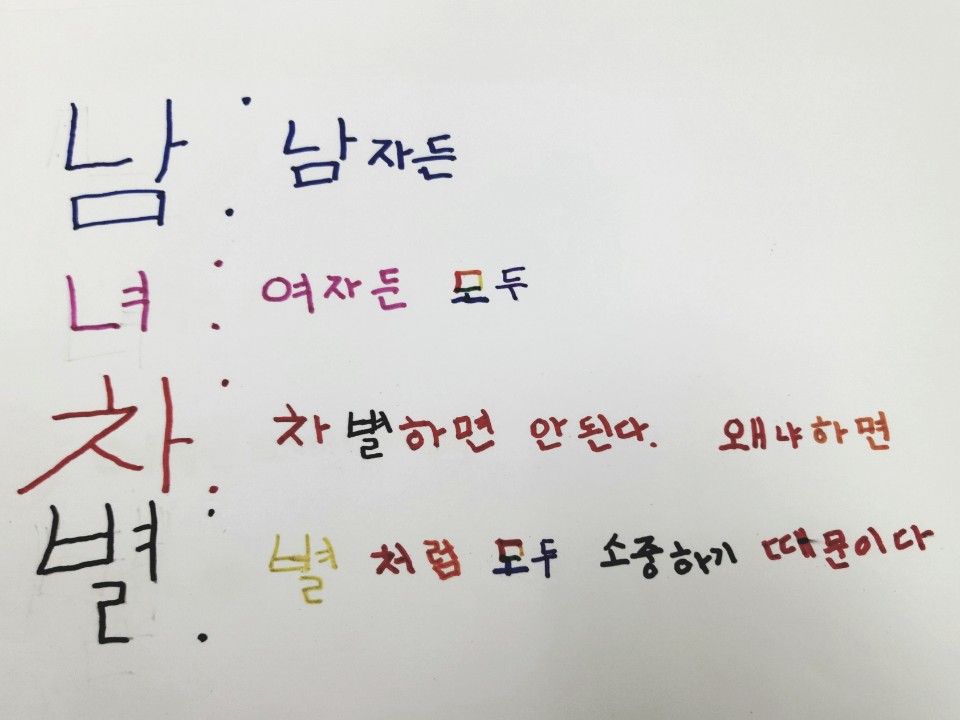 남 : 남자든
녀 : 여자든 모두
차 : 차별하면 안 된다. 왜냐하면
별 : 별처럼 모두 소중하기 때문이다